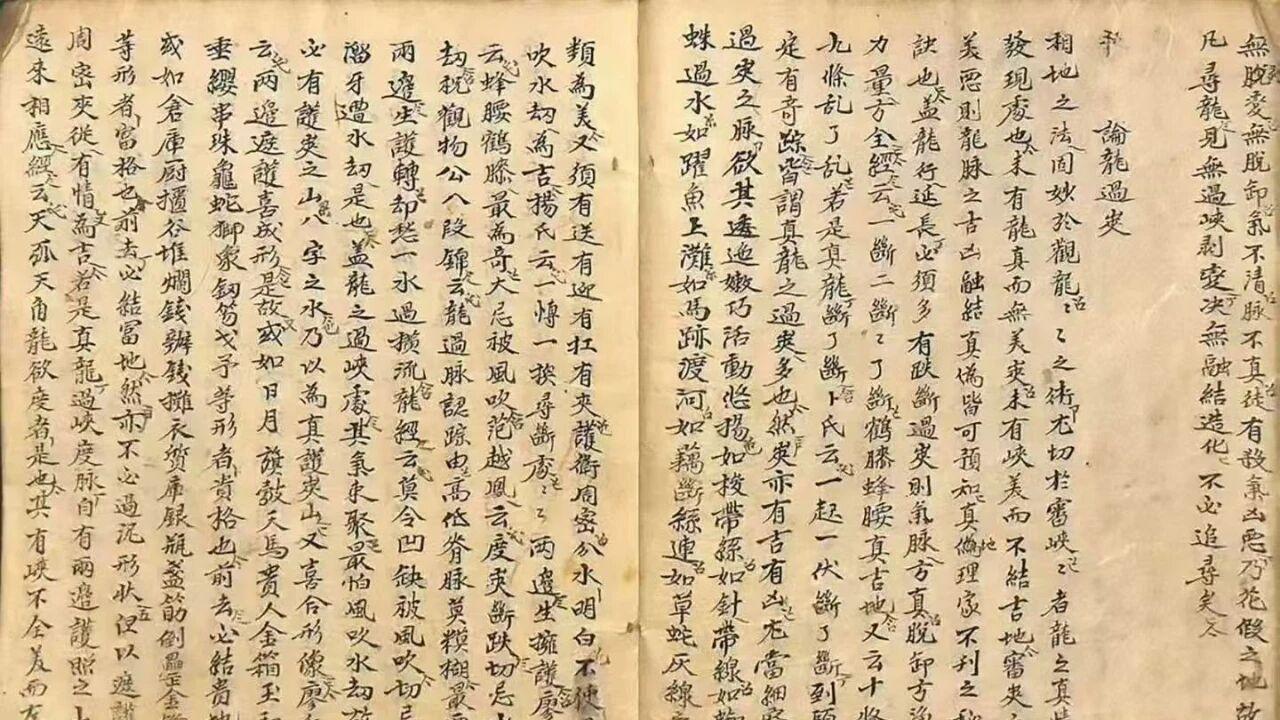 無脫爱無脫卸氣不清脉不真徒有殺氣凶恶乃花假之地故
凡尋龍見無過峡剥变决無融結造化不必追尋矣
論龍過夾
相地之法固妙於觀龍〻之術尤切於審峽〻者龍之真
發現處也未有龍真而無美夾未有峽美而不結吉地審夾之
美恶則龍脉之吉凶融結真偽皆可預知真偽理家不刋之秘
訣也盖龍行延長必須多有跌斷過夾則氣脉方真脫卸方
力量方全經云一斷二斷〻了斷鶴膝蜂腰真吉地又云十條
九條乱了乱若是真龍斷了斷卜氏云一起一伏斷了斷到頭
定有奇踪皆謂真龍之過夾多也然夾亦有吉有凶尤當細
過夾之脉欲其透迤嫩巧活動悠揚如梭帶絲如針帶線如
蛛過水如躍魚上灘如馬跡渡河如藕斷絲連如草蛇灰線
類為美又須有送有迎有扛有夾護衛周密分水明白不使
吹水刼為吉楊氏云一博一換尋斷處〻〻兩邊生擁護廖
云蜂腰鶴膝最為奇大忌被風吹范越鳳云度夾斷跌切忌
刼稅觀物公八段錦云龍過脉認踪由高低脊脉莫糢糊最
兩邊生護轉却愁一水過攔流龍經云莫令凹缺被風吹切忌
溜牙遭水刼是也盖龍之過峽處其氣束聚最怕風吹水刼故
必有護夾之山八字之水乃以為真護夾山又喜合形像廖
云兩邊遮護喜成形是故或如日月旗鼓天馬貴人金箱玉
垂纓串珠龜蛇獅象劒笏戈矛等形者貴格也前去必結貴地
或如倉庫厨櫃谷堆爛錢辦錢攤衣貭庫銀瓶盞筯倒
等形者富格也前去必結富地然亦不必過泥形状但以遮護
周密夾從有情為吉若是真龍過峽度脉自有兩邊護照之
遠來相應經云天孤天角龍欲度者是也其有峽不全美而